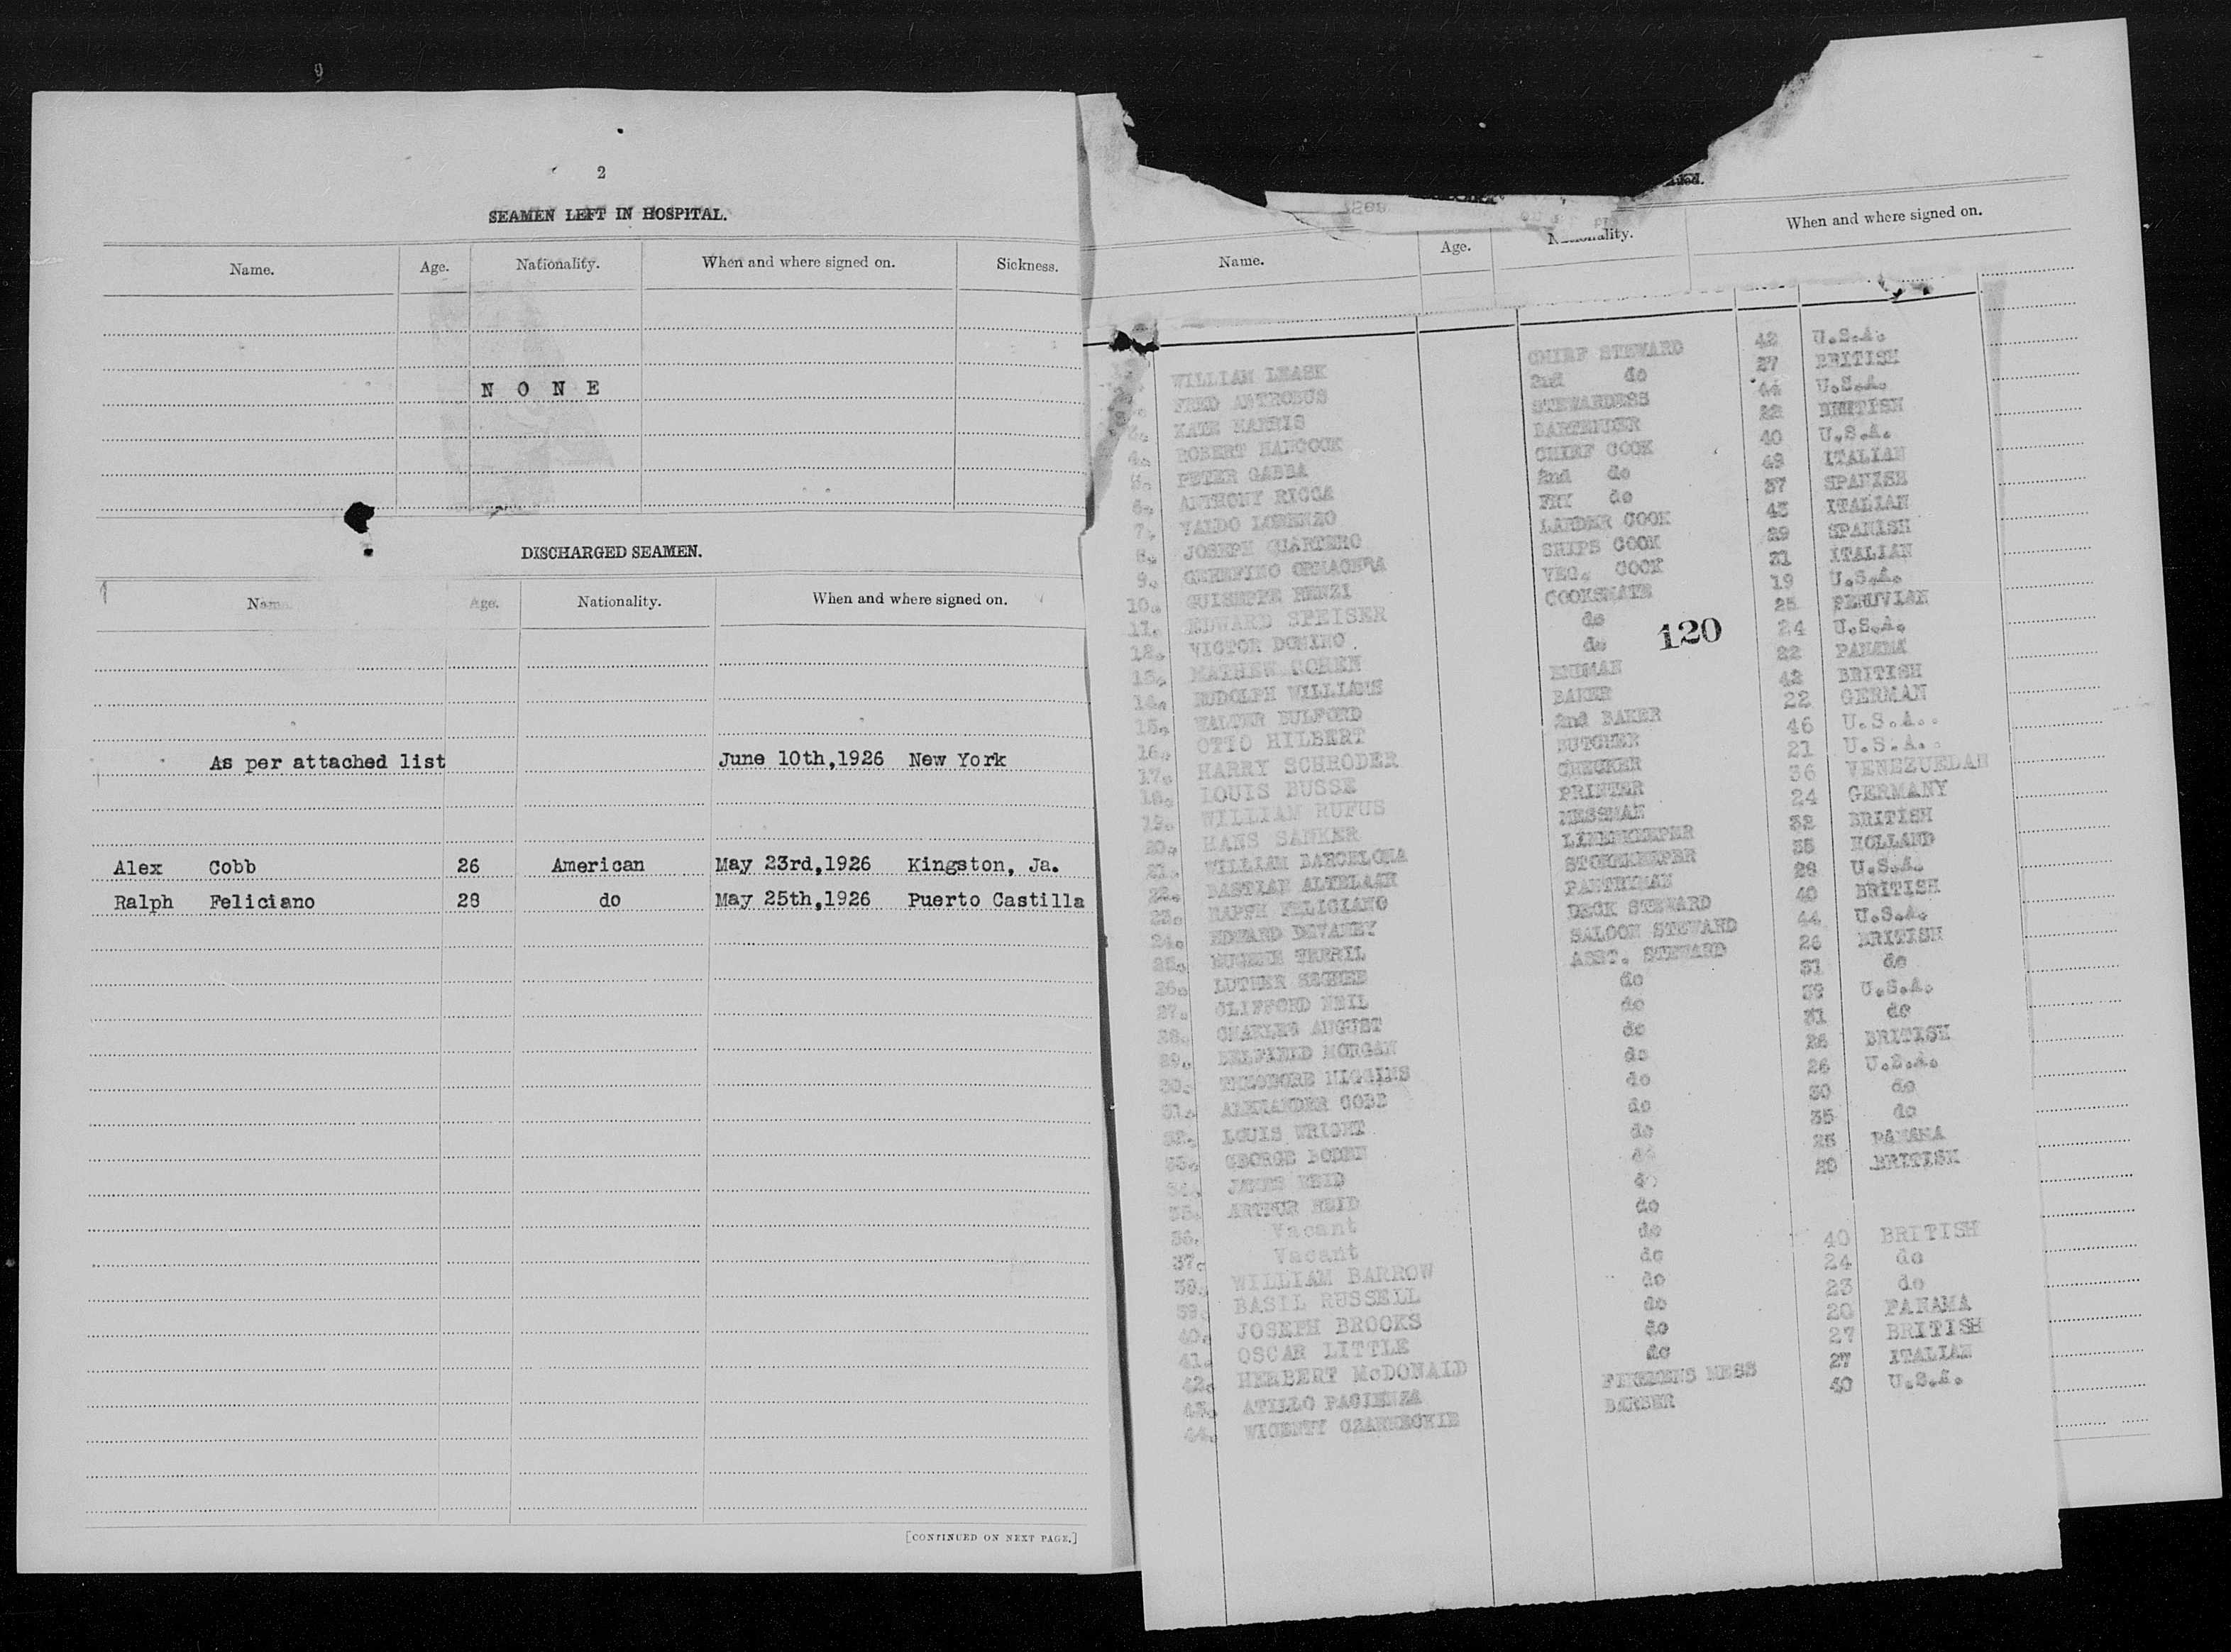 2
SEAMEN LEFT IN HOSPITAL.
Name. Age. Nationality. When and where signed on. Sickness.
N O N E
DISCHARGED SEAMEN.
Name. Age. Nationality. When and where signed on.
As per attached list June 10th,1926 New York
Alex Cobb 26 American May 23rd,1926 Kingston, Ja.
Ralph Feliciano 28 do May 25th,1926 Puerto Castilla
[CONTINUED ON NEXT PAGE.]
Name. Age. Nationality. When and where signed on.
WILLIAM LEASK CHIEF STEWARD 42 U.S.A.
FRED ANTROBUS 2nd do 27 BRITISH
KATE HARRIS STEWARDESS 44 U.S.A.
4. ROBERT HANCOCK BARTENDER 22 BRITISH
5. PETER GABBA CHIEF COOK 40 U.S.A.
6. ANTHONY RICCA 2nd do 49 ITALIAN
7. VALDO LORENZO FRY do 37 SPANISH
8. JOSEPH QUARTERO LARDER COOK 43 ITALIAN
9. SHIPS COOK 29 SPANISH
10. GUISEPPE RENZI VEG. COOK 31 ITALIAN
11. EDWARD SPEISER COOKSMATE 19 U.S.A.
12. VICTOR DOMINO do 25 PERUVIAN
13. MATHEW COHEN do 24 U.S.A.
120
14. RUDOLPH WILLIAMS 22 PANAMA
15. WALTER BULFORD BAKER 42 BRITISH
16. OTTO HILBERT 2nd BAKER 22 GERMAN
17. HARRY SCHRODER BUTCHER 46 U.S.A.
18. LOUIS BUSSE CHECKER 21 U.S.A.
19. WILLIAM RUFUS PRINTER 36 VENEZUEDAN
20. HANS SANKER MESSMAN 24 GERMANY
21. WILLIAM BARCELONA LINENKEEPER 32 BRITISH
22. BASTIAN ALTELAAR STOREKEEPER 35 HOLLAND
23. RAPPH FELICIANO PANTRYMAN 28 U.S.A.
24. EDWARD DEVANEY DECK STEWARD 40 BRITISH
25. EUGENE TERRIL SALOON STEWARD 44 U.S.A.
26. LUTHER SEGREE ASST. STEWARD 26 BRITISH
27. CLIFFORD NEIL do 31 do
28. CHARLES AUGUST do 39 U.S.A.
29. MORGAN do 31 do
30. THEODORE HIGGINS do 28 BRITISH
31. ALEXANDER COBB do 26 U.S.A.
32. LOUIS WRIGHT do 30 do
33. GEORGE BODEN do 35 do
34. JAMES REID do 25 PANAMA
35. ARTHUR REID do 20 BRITISH
36. Vacant do
37. Vacant do
38. WILLIAM BARROW do 40 BRITISH
39. BASIL RUSSELL do 24 do
40. JOSEPH BROOKS do 23 do
41. OSCAR LITTLE do 20 PANAMA
42. HERBERT McDONALD do 27 BRITISH
43. ATILLO PACIENZA FIREMENS MESS 27 ITALIAN
44. WICENTY CZARNECKIE BARBER 40 U.S.A.